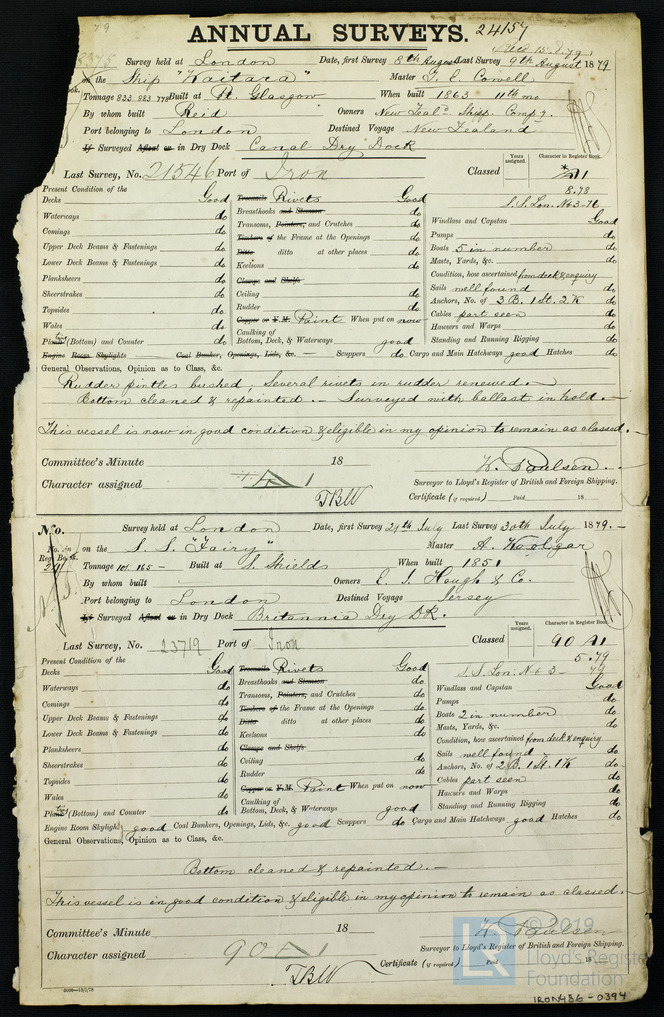 79
ANNUAL SURVEYS. 24157
Rec'd 15.8.79
8375 Survey held at London Date, first Survey 8th August Last Survey 9th August 1879
on the Ship "Waitara" Master G. E. Cowell
Tonnage 833 883 778 Built at Pt. Glasgow When built 1863 11th mo
By whom built Reid Owners New Zeald Shipp. Compy.
Port belonging to London Destined Voyage New Zealand
If Surveyed Afloat or in Dry Dock Canal Dry Dock
Last Survey, No. 21546 Port of Iron Classed Years assigned. Character in Register Book. A1
8.78
S.S. Lon. No 3-76
Present Condition of the
Decks Good Treenails Rivets Good Windlass and Capstan Good
Waterways do Breasthooks and Stemson do Pumps do
Comings do Transoms, Pointers, and Crutches do Boats 5 in number do
Upper Deck Beams & Fastenings do Timbers of the Frame at the Openings do Masts, Yards, &c. do
Lower Deck Beams & Fastenings do Ditto ditto at other places do Condition, how ascertained from deck & enquiry
Planksheers do Keelsons do Sails well found do
Sheerstrakes do Clamps and Shelfs Anchors, No. of 3 B. 1 St. 2 K do
Topsides do Ceiling do Cables part seen do
Wales do Rudder do Hawsers and Warps do
Plating (Bottom) and Counter do Copper or Y.M. Paint When put on now Standing and Running Rigging do
Caulking of Bottom, Deck, & Waterways good
Engine Room Skylights Coal Bunker, Openings, Lids, &c. Scuppers do Cargo and Main Hatchways good Hatches do
General Observations, Opinion as to Class, &c.
Rudder pintles bushed, Several rivets in rudder renewed.
Bottom cleaned & repainted. Surveyed with ballast in hold.
This vessel is now in good condition & eligible in my opinion to remain as classed.
Committee's Minute 18 W. Paulsen.
Character assigned A1 Surveyor to Lloyd's Register of British and Foreign Shipping.
TBW Certificate (if required) Paid 18
No. Survey held at London Date, first Survey 29th July Last Survey 30th July 1879.
No. in Reg. Book. on the S. S. "Fairy" Master
Tonnage 101 165 Built at S. Shields When built 1851
By whom built Owners E. J. Hough & Co.
Port belonging to London Destined Voyage Jersey
If Surveyed Afloat or in Dry Dock Britannia Dry Dk.
Last Survey, No. 23719 Port of Iron Classed Years assigned. Character in Register Book. 90 A1
5.79
S.S. Lon. No 3-
Present Condition of the
Decks Good Treenails Rivets Good Windlass and Capstan Good
Waterways do Breasthooks and Stemson do Pumps do
Comings do Transoms, Pointers, and Crutches do Boats 2 in number do
Upper Deck Beams & Fastenings do Timbers of the Frame at the Openings do Masts, Yards, &c. do
Lower Deck Beams & Fastenings do Ditto ditto at other places do Condition, how ascertained from deck & enquiry
Planksheers do Keelsons do Sails well found do
Sheerstrakes do Clamps and Shelfs Anchors, No. of 2 B. 1 St. 1 K do
Topsides do Ceiling do Cables part seen do
Wales do Rudder do Hawsers and Warps do
Plating (Bottom) and Counter do Copper or Y.M. Paint When put on now Standing and Running Rigging do
Caulking of Bottom, Deck, & Waterways good
Engine Room Skylights good Coal Bunkers, Openings, Lids, &c. good Scuppers do Cargo and Main Hatchways good Hatches do
General Observations, Opinion as to Class, &c.
Bottom cleaned & repainted.
This vessel is in good condition & eligible in my opinion to remain as classed.
Committee's Minute 18 W. Paulsen
Character assigned 90 A1 Surveyor to Lloyd's Register of British and Foreign Shipping.
TBW Certificate (if required) Paid 18
© 2019
Lloyd's Register
Foundation
IRON486-0394